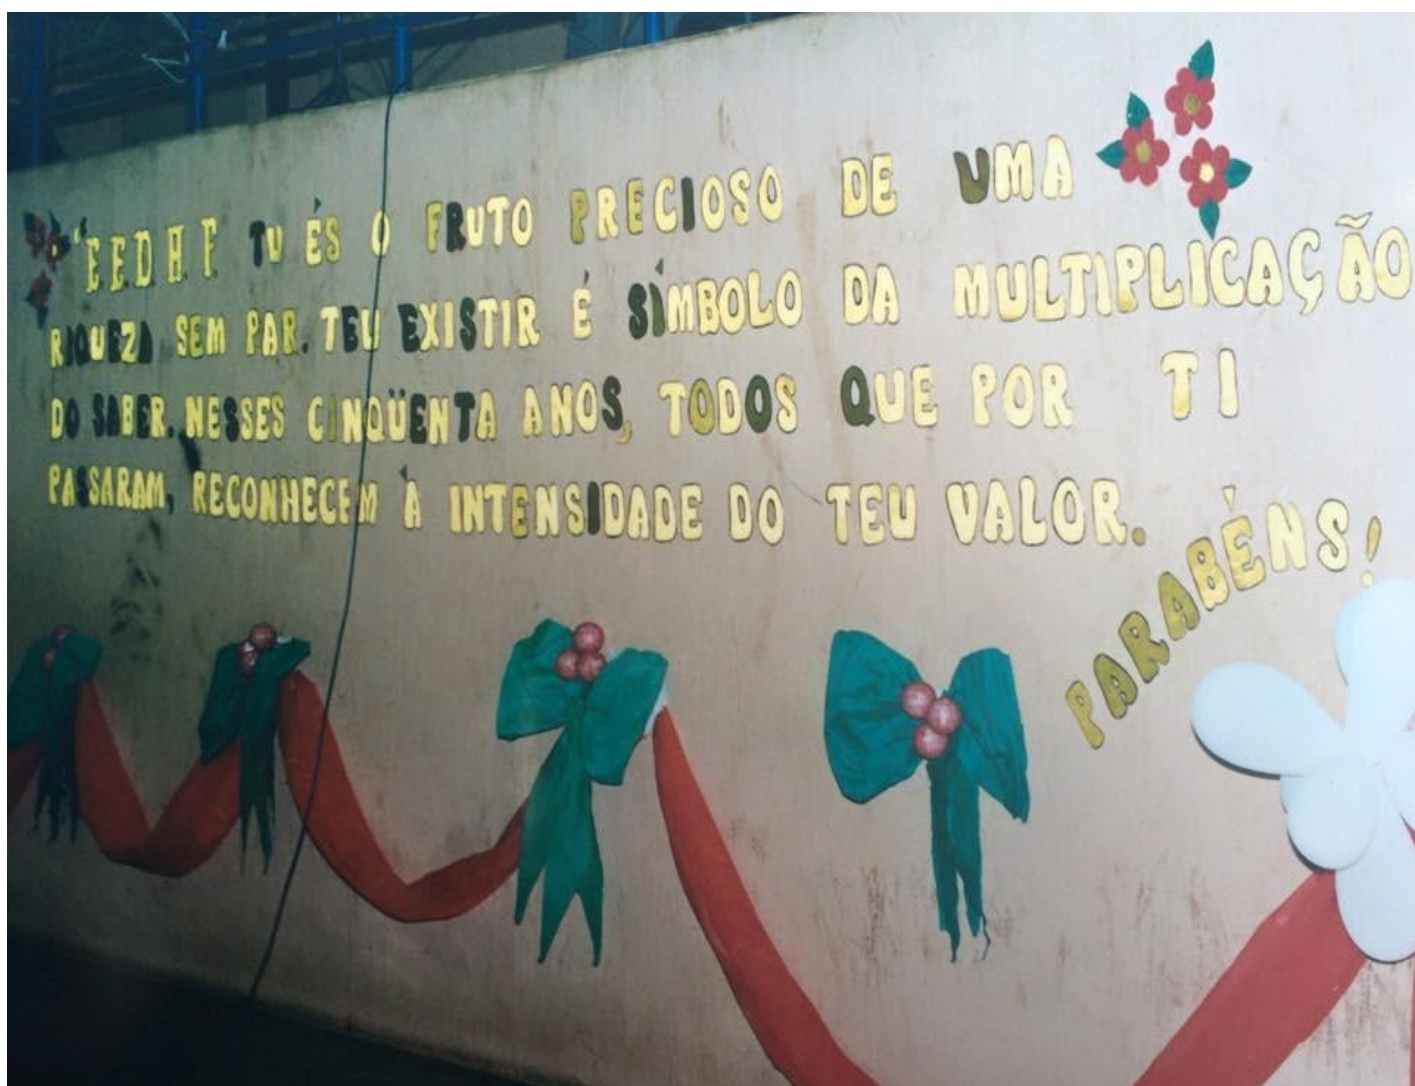 "EEDHF TU ÉS O FRUTO PRECIOSO DE UMA
RIQUEZA SEM PAR. TEU EXISTIR É SÍMBOLO DA MULTIPLICAÇÃO
DO SABER. NESSES CINQÜENTA ANOS, TODOS QUE POR TI
PASSARAM, RECONHECEM À INTENSIDADE DO TEU VALOR.
PARABÉNS!